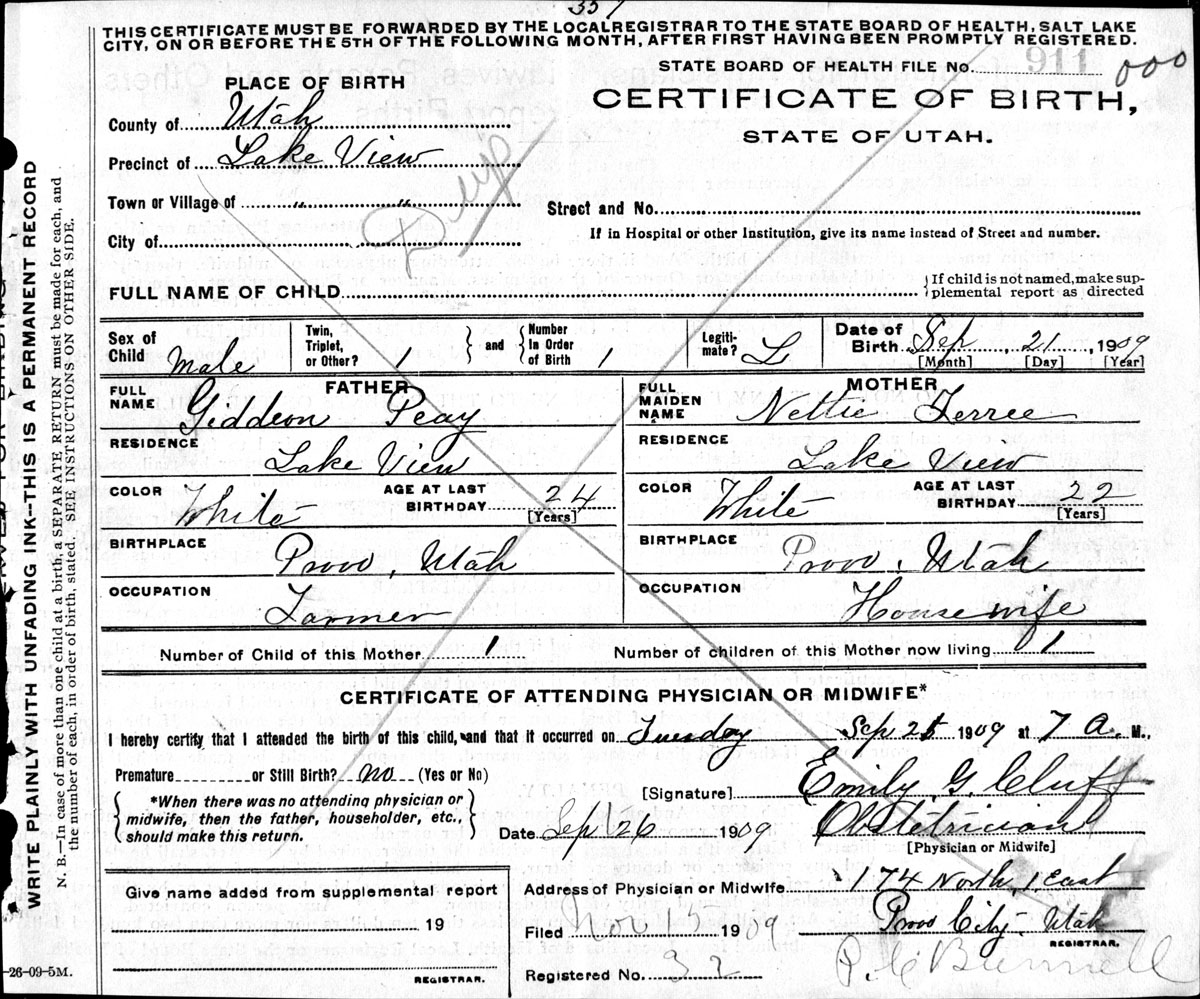 357
THIS CERTIFICATE MUST BE FORWARDED BY THE LOCAL REGISTRAR TO THE STATE BOARD OF HEALTH, SALT LAKE
CITY, ON OR BEFORE THE 5TH OF THE FOLLOWING MONTH, AFTER FIRST HAVING BEEN PROMPTLY REGISTERED.
STATE BOARD OF HEALTH FILE No. 911 000
PLACE OF BIRTH
CERTIFICATE OF BIRTH,
STATE OF UTAH.
County of Utah
Precinct of Lake View
Town or Village of " "
Street and No.
City of
If in Hospital or other Institution, give its name instead of Street and number.
Dup
FULL NAME OF CHILD { If child is not named, make sup-
plemental report as directed
Sex of Child Male
Twin, Triplet, or Other? 1 } and { Number In Order of Birth 1
Legiti-mate? L
Date of Birth Sep, 21, 1909
[Month] [Day] [Year]
FATHER
FULL NAME Geddeon Peay
RESIDENCE Lake View
COLOR White AGE AT LAST BIRTHDAY 24 [Years]
BIRTHPLACE Provo, Utah
OCCUPATION Farmer
MOTHER
FULL MAIDEN NAME Nettie Ferree
RESIDENCE Lake View
COLOR White AGE AT LAST BIRTHDAY 22 [Years]
BIRTHPLACE Provo, Utah
OCCUPATION House wife
Number of Child of this Mother 1 Number of children of this Mother now living 1
CERTIFICATE OF ATTENDING PHYSICIAN OR MIDWIFE*
I hereby certify that I attended the birth of this child, and that it occurred on Tuesday Sep 21 1909 at 7 A. M.,
Premature or Still Birth? no (Yes or No)
{ *When there was no attending physician or
midwife, then the father, householder, etc.,
should make this return. }
[Signature] Emily G. Cluff
Date Sep 26 1909 Obstetrician
[Physician or Midwife]
Give name added from supplemental report
19
REGISTRAR.
Address of Physician or Midwife 174 North 1 East
Provo City Utah
Filed Nov 1909
REGISTRAR.
Registered No. 32 Bunnell
-26-09-5M.
WRITE PLAINLY WITH UNFADING INK--THIS IS A PERMANENT RECORD
N. B.—In case of more than one child at a birth, a SEPARATE RETURN must be made for each, and
the number of each, in order of birth, stated. SEE INSTRUCTIONS ON OTHER SIDE.